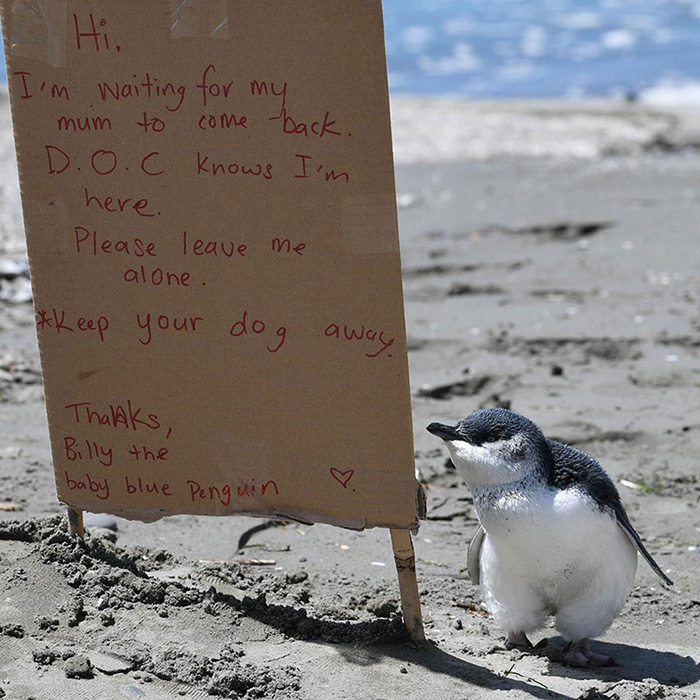 Hi,
I'm waiting for my
mum to come back.
D.O.C knows I'm
here.
Please leave me
alone.
*Keep your dog away.
Thanks,
Billy the
baby blue Penguin ♡